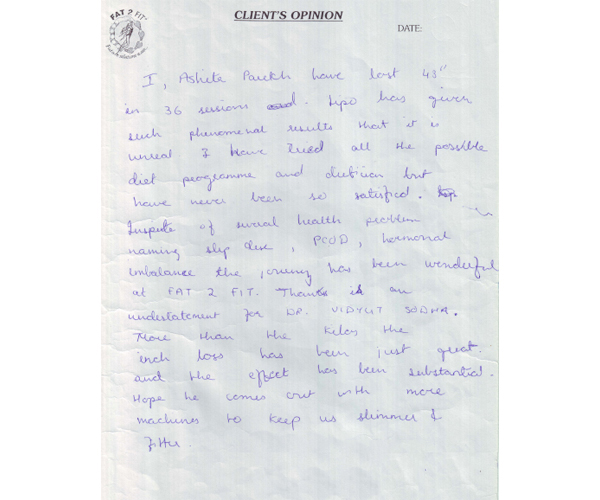 FAT 2 FIT
CLIENT'S OPINION
DATE:
I, Ashita Parekh have lost 43"
in 36 sessions. Lipo has given
such phenomenal results that it is
unreal I have tried all the possible
diet programme and dietician but
have never been so satisfied.
Inspite of several health problem
naming slip disc, PCOD, hormonal
imbalance the journey has been wonderful
at FAT 2 FIT. Thanks is an
understatement for DR. VIDYUT SODHA.
More than the kilos the
inch loss has been just great.
and the effect has been substantial.
Hope he comes out with more
machines to keep us slimmer &
fitter.